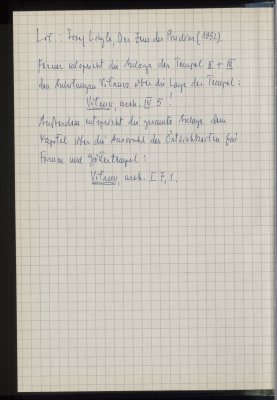 Lit.: Josef Liegle, Der Zeus des Phidias (1952)
Ferner entspricht die Anlage der Tempel II + III
den Anleitungen Vitruvs über die Lage der Tempel:
Vitruv, arch. IV 5.
Außerdem entspricht die gesamte Anlage dem
Kapitel über die Auswahl der Örtlichkeiten für
Forum und Göttertempel:
Vitruv, arch. I 7,1.